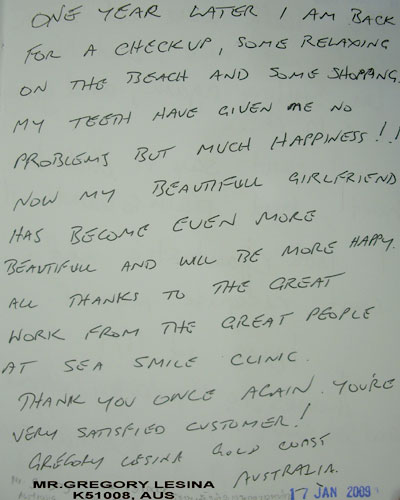 ONE YEAR LATER I AM BACK
FOR A CHECKUP, SOME RELAXING
ON THE BEACH AND SOME SHOPPING.
MY TEETH HAVE GIVEN ME NO
PROBLEMS BUT MUCH HAPPINESS!!
NOW MY BEAUTIFULL GIRLFRIEND
HAS BECOME EVEN MORE
BEAUTIFULL AND WILL BE MORE HAPPY.
ALL THANKS TO THE GREAT
WORK FROM THE GREAT PEOPLE
AT SEA SMILE CLINIC.
THANK YOU ONCE AGAIN. YOU'RE
VERY SATISFIED CUSTOMER!
GREGORY LESINA GOLD COAST
AUSTRALIA.
MR.GREGORY LESINA
K51008, AUS
17 JAN 2009